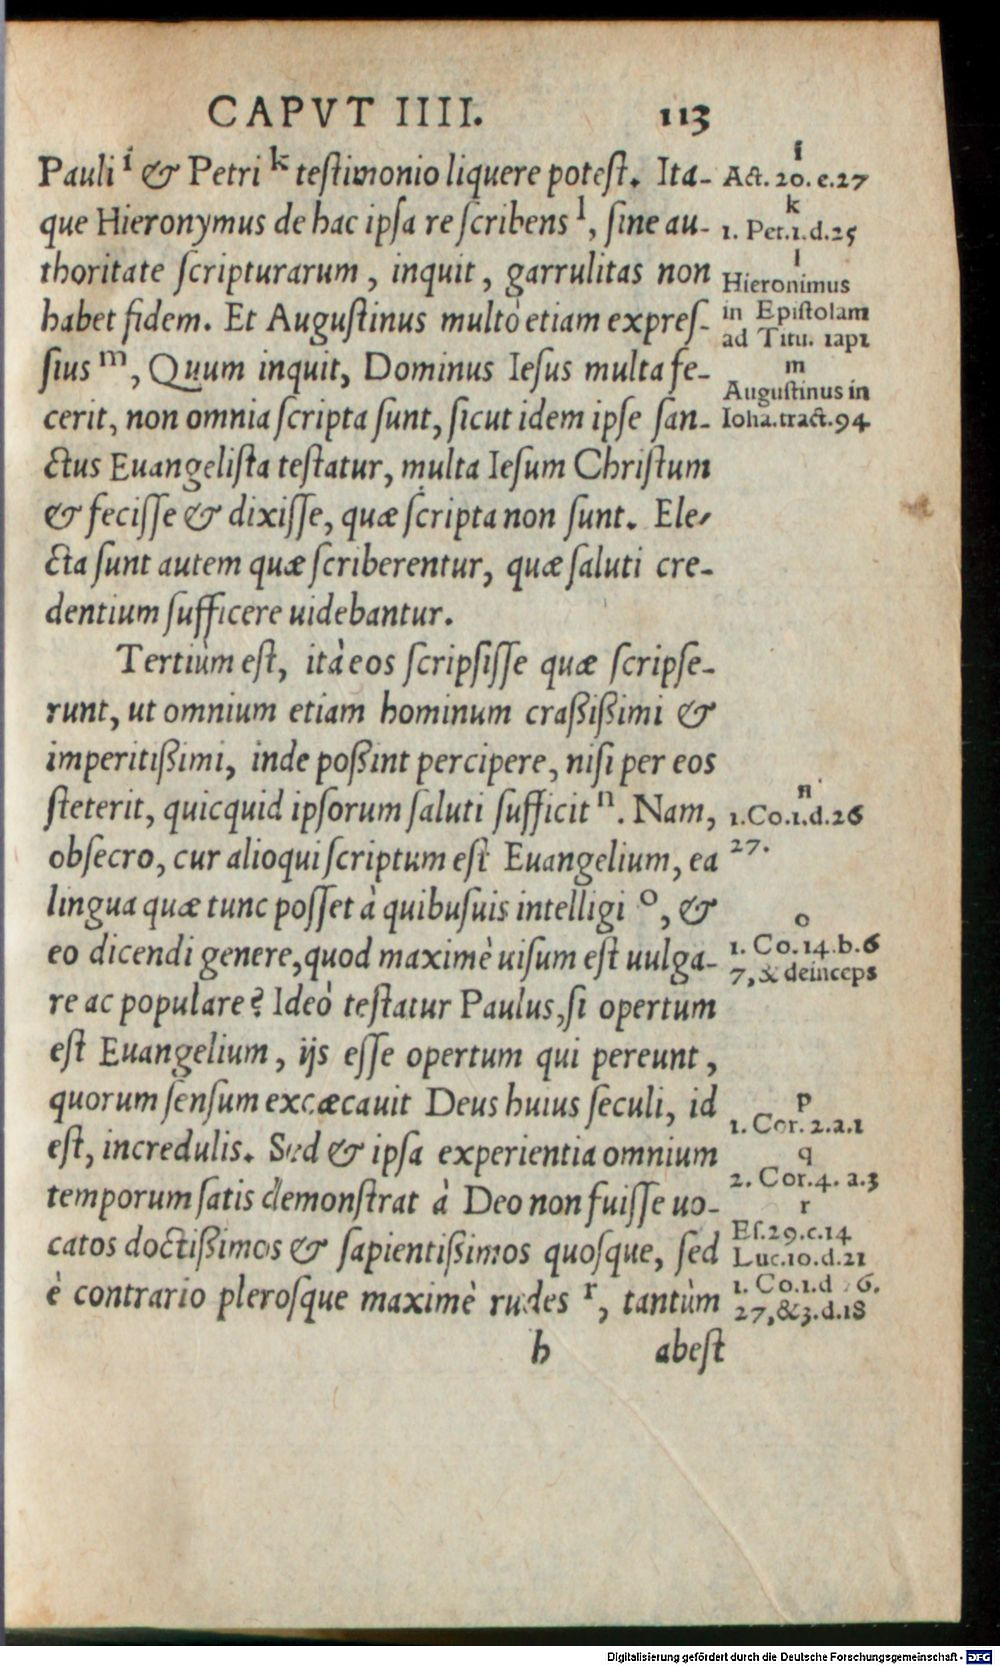 CAPVT IIII. 113
Pauli i & Petri k testimonio liquere potest. Ita-
que Hieronymus de hac ipsa re scribens l, sine au-
thoritate scripturarum, inquit, garrulitas non
habet fidem. Et Augustinus multò etiam expres-
sius m, Quum inquit, Dominus Iesus multa fe-
cerit, non omnia scripta sunt, sicut idem ipse san-
ctus Euangelista testatur, multa Iesum Christum
& fecisse & dixisse, quæ scripta non sunt. Ele-
cta sunt autem quæ scriberentur, quæ saluti cre-
dentium sufficere uidebantur.
Tertiùm est, ità eos scripsisse quæ scripse-
runt, ut omnium etiam hominum craßißimi &
imperitißimi, inde poßint percipere, nisi per eos
steterit, quicquid ipsorum saluti sufficit n. Nam,
obsecro, cur alioqui scriptum est Euangelium, ea
lingua quæ tunc posset à quibusuis intelligi o, &
eo dicendi genere, quod maximè uisum est uulga-
re ac populare? Ideò testatur Paulus, si opertum
est Euangelium, ijs esse opertum qui pereunt,
quorum sensum excæcauit Deus huius seculi, id
est, incredulis. Sed & ipsa experientia omnium
temporum satis demonstrat à Deo non fuisse uo-
catos doctißimos & sapientißimos quosque, sed
è contrario plerosque maximè rudes r, tantùm
h abest
i
Act. 20. e. 27
k
1. Pet. 1. d. 25
l
Hieronimus
in Epistolam
ad Titu. 1ap1
m
Augustinus in
Ioha. tract. 94
n
1. Co. 1. d. 26
27.
o
1. Co. 14. b. 6
7, & deinceps
p
1. Cor. 2. a. 1
q
2. Cor. 4. a. 3
r
Es. 29. c. 14
Luc. 10. d. 21
1. Co. 1. d 6.
27, & 3. d. 18
Digitalisierung gefördert durch die Deutsche Forschungsgemeinschaft - DFG